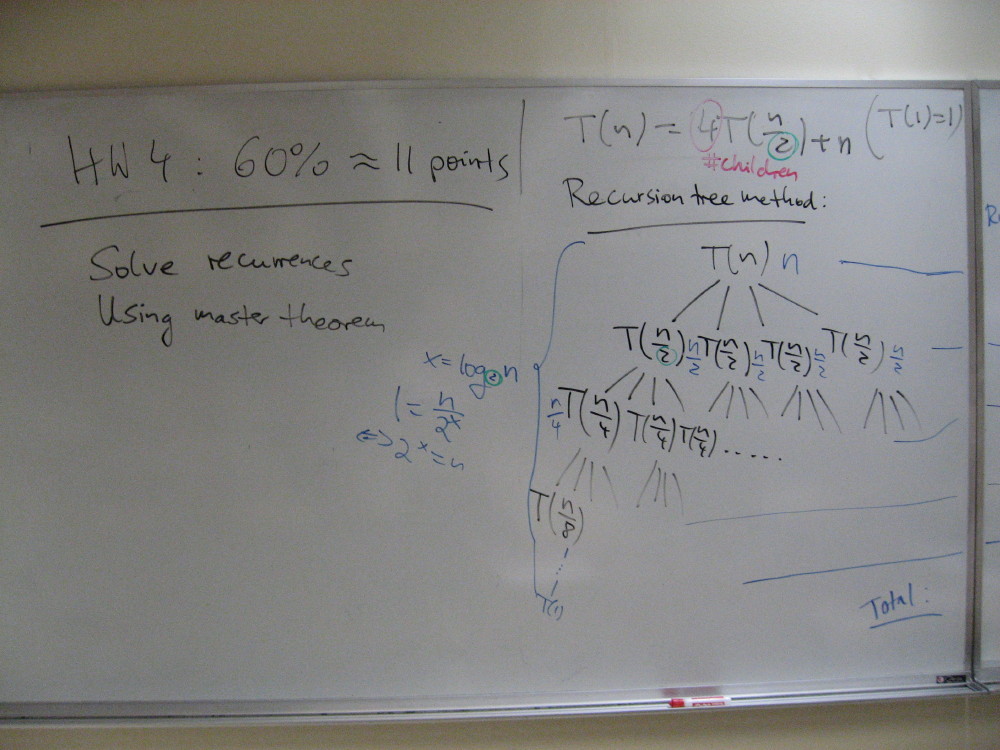 HW 4 : 60% ≈ 11 points
Solve recurrences
Using master theorem
T(n) = 4T(n/2) + n (T(1)=1)
#children
Recursion tree method:
T(n) n
T(n/2) n/2 T(n/2) n/2 T(n/2) n/2 T(n/2) n/2
x = log₂n
1 = n/2ˣ
<=> 2ˣ = n
n/4 T(n/4) T(n/4) T(n/4) .....
T(n/8)
T(1)
Total: